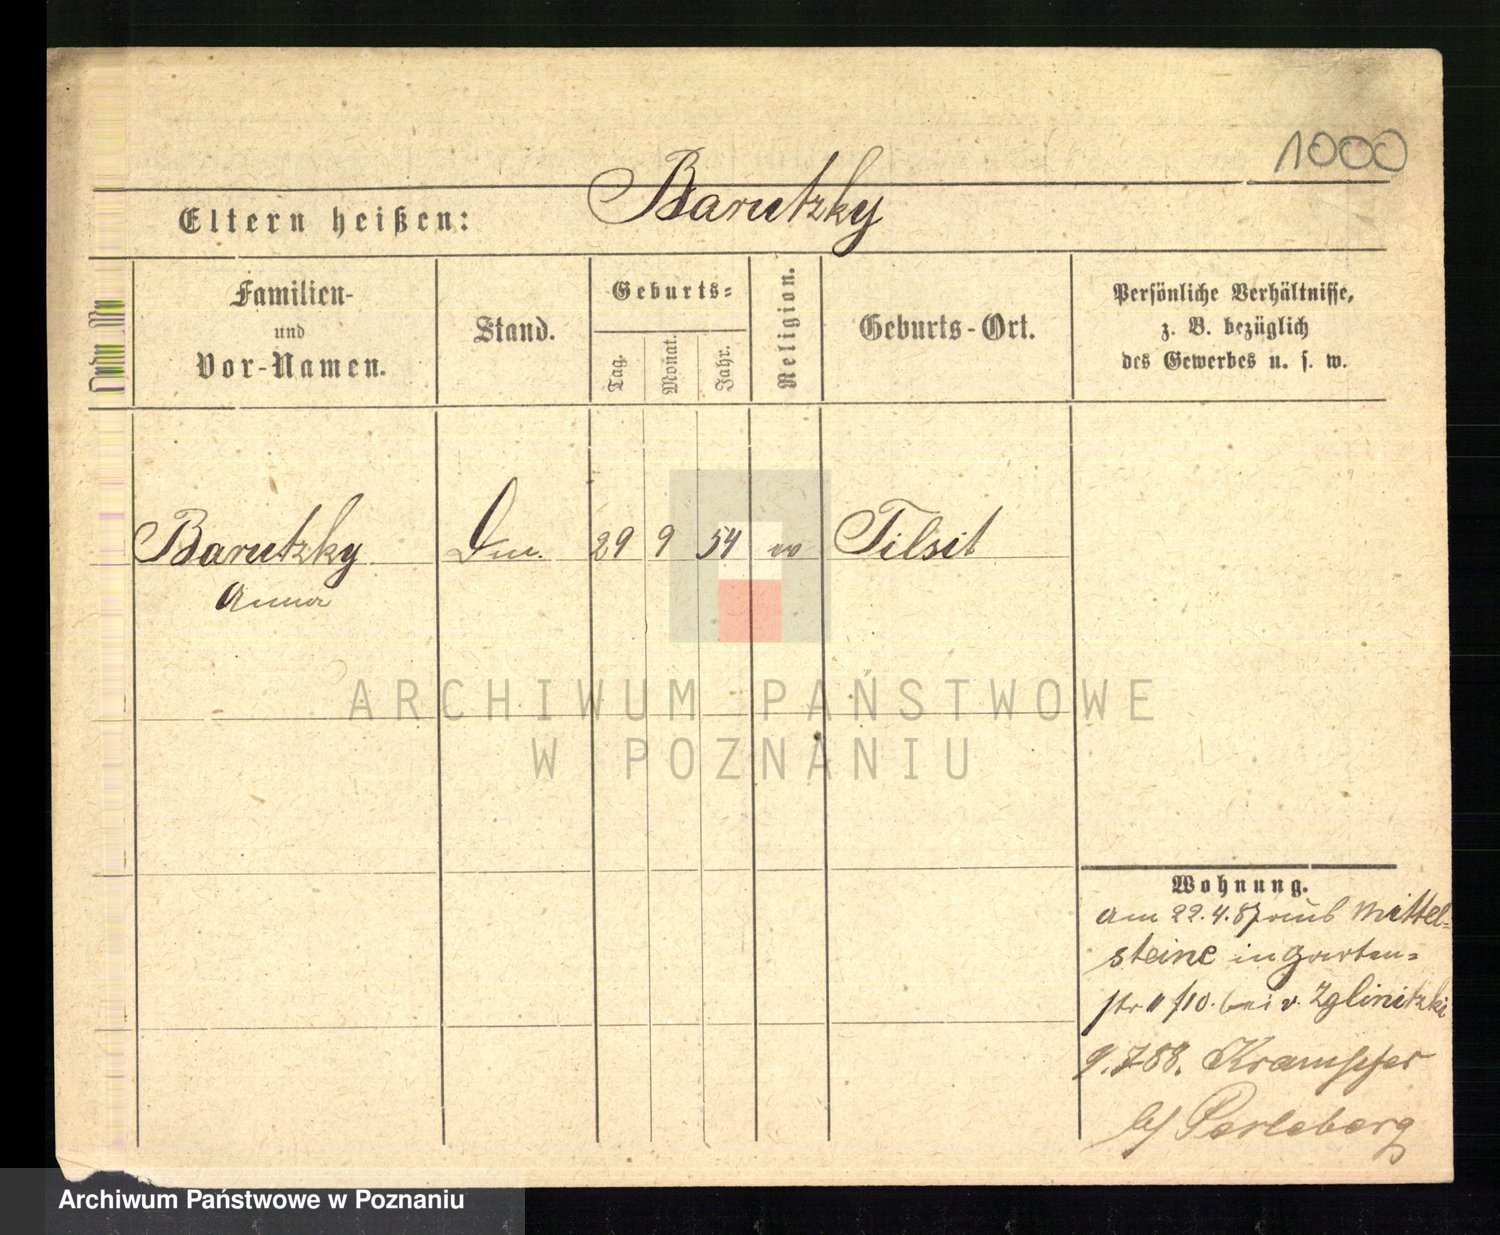 1000
Eltern heißen: Barutzky
Familien-
und
Vor-Namen.
Stand.
Geburts-
Tag.
Monat.
Jahr.
Religion.
Geburts-Ort.
Persönliche Verhältnisse,
z. B. bezüglich
des Gewerbes u. s. w.
Barutzky 29 9 54 Tilsit
Anna
ARCHIWUM PAŃSTWOWE
W POZNANIU
Wohnung.
am 22.4.87 aus Mittel-
steine in Garten-
str 11 /10. bei v. Zglinitzki
9.7.88. Krampfer
b/ Perleberg
Archiwum Państwowe w Poznaniu